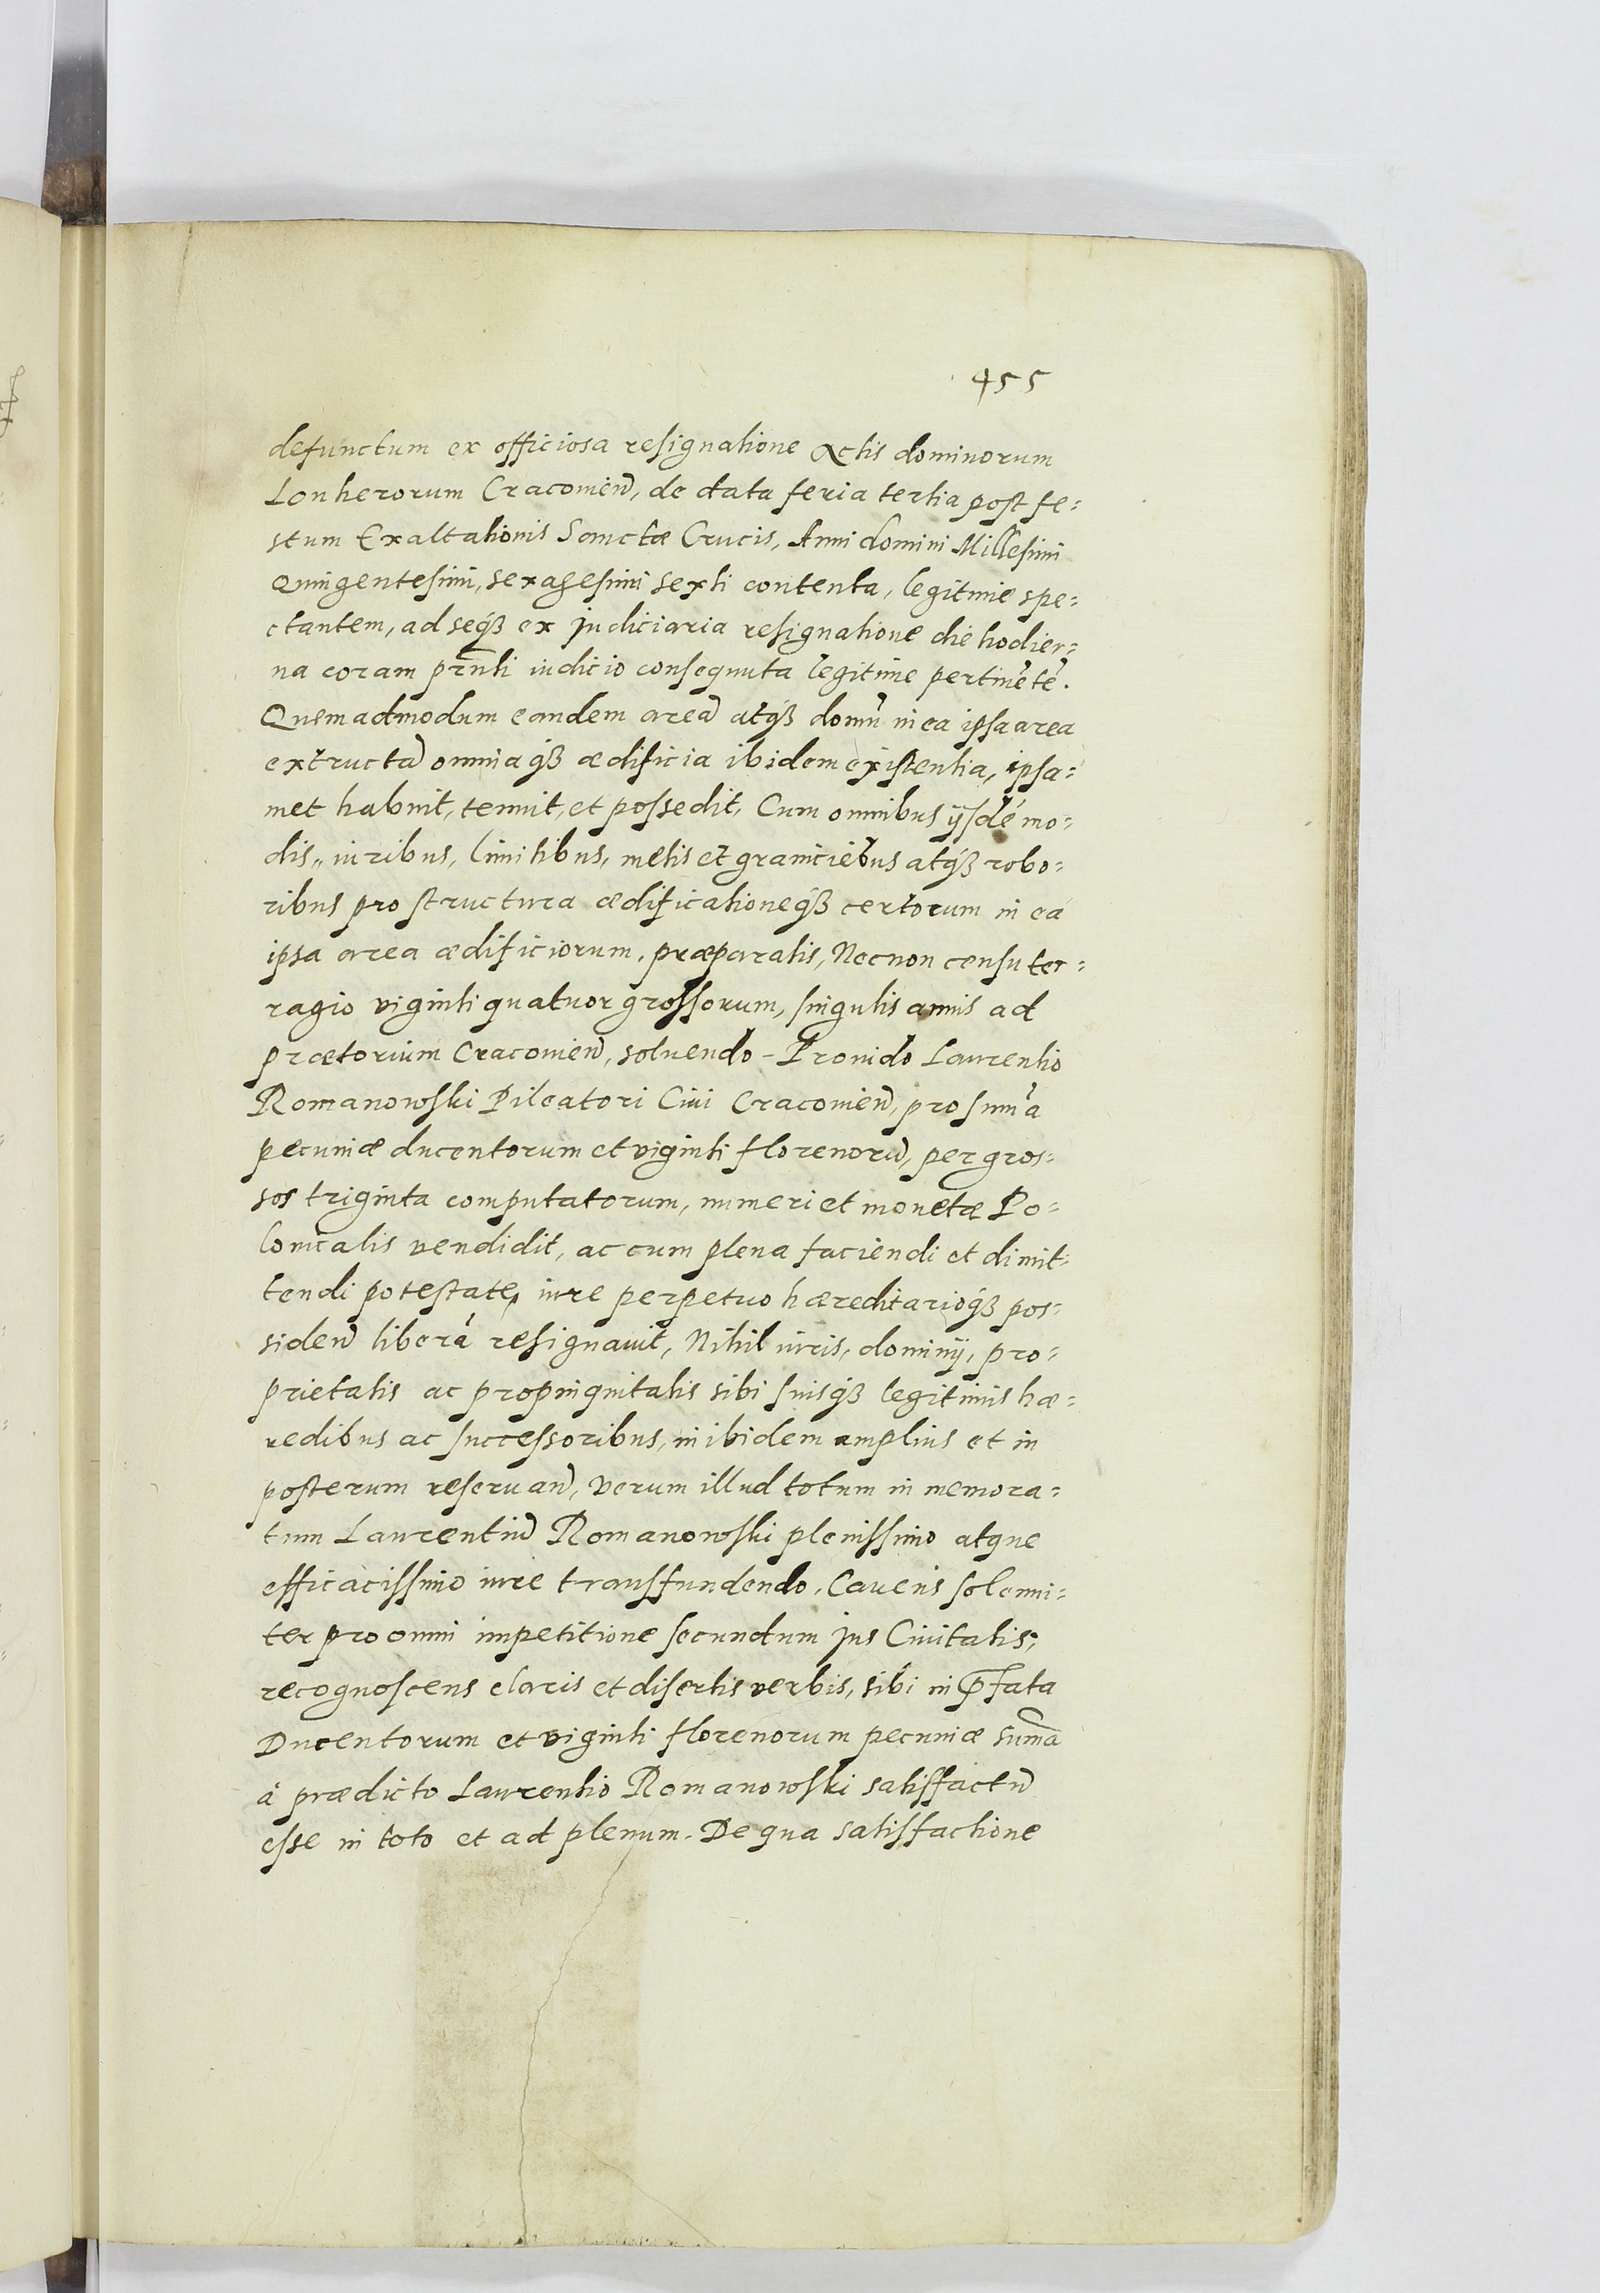 455
defunctum ex officiosa resignatione Actis dominorum
Lonherorum Cracovieñ, de data feria tertia post fe=
stum Exaltationis Sanctæ Crucis, Anni domini Millesimi
Quingentesimi, sexagesimi sexti contenta, legitime spe=
ctantem, ad seqꝫ ex judiciaria resignatione die hodier=
na coram prn̄ti iudicio consequuta legitime pertinētē.
Quemadmodum eandem areā atqꝫ domū in ea ipsa area
extructā omniaqꝫ ædificia ibidem existentia, ipsa=
met habuit, tenuit, et possedit, Cum omnibus ijsdē mo=
dis, iuribus, limitibus, metis et graniciebus atqꝫ robo=
ribus pro structura ædificationeqꝫ certorum in ea
ipsa area ædificiorum, præparatis, Necnon censu ter=
ragio viginti quatuor grossorum, singulis annis ad
prætorium Cracovieñ, solvendo - Provido Laurentio
Romanowski Pileatori Civi Cracovieñ, pro sum̄a
pecuniæ ducentorum et viginti florenorū, per gros=
sos triginta computatorum, numeri et monetæ Po=
lonicalis vendidit, ac cum plena faciendi et dimit=
tendi potestate, iure perpetuo hæreditarioqꝫ pos=
sideñ liberā resignavit, Nihil iuris, dominij, pro=
prietatis ac propinquitatis sibi suisqꝫ legitimis hæ=
redibus ac successoribus, in ibidem amplius et in
posterum reservañ, Verum illud totum in memora=
tum Laurentiū Romanowski plenissimo atque
efficacissimo iure transfundendo, Cavens solenni=
ter pro omni impetitione secundum jus Civitatis;
recognoscens claris et disertis verbis, sibi in p̄fata
Ducentorum et viginti florenorum pecuniæ sum̄a
à prædicto Laurentio Romanowski satisfactū
esse in toto et ad plenum. De qua satisfactione